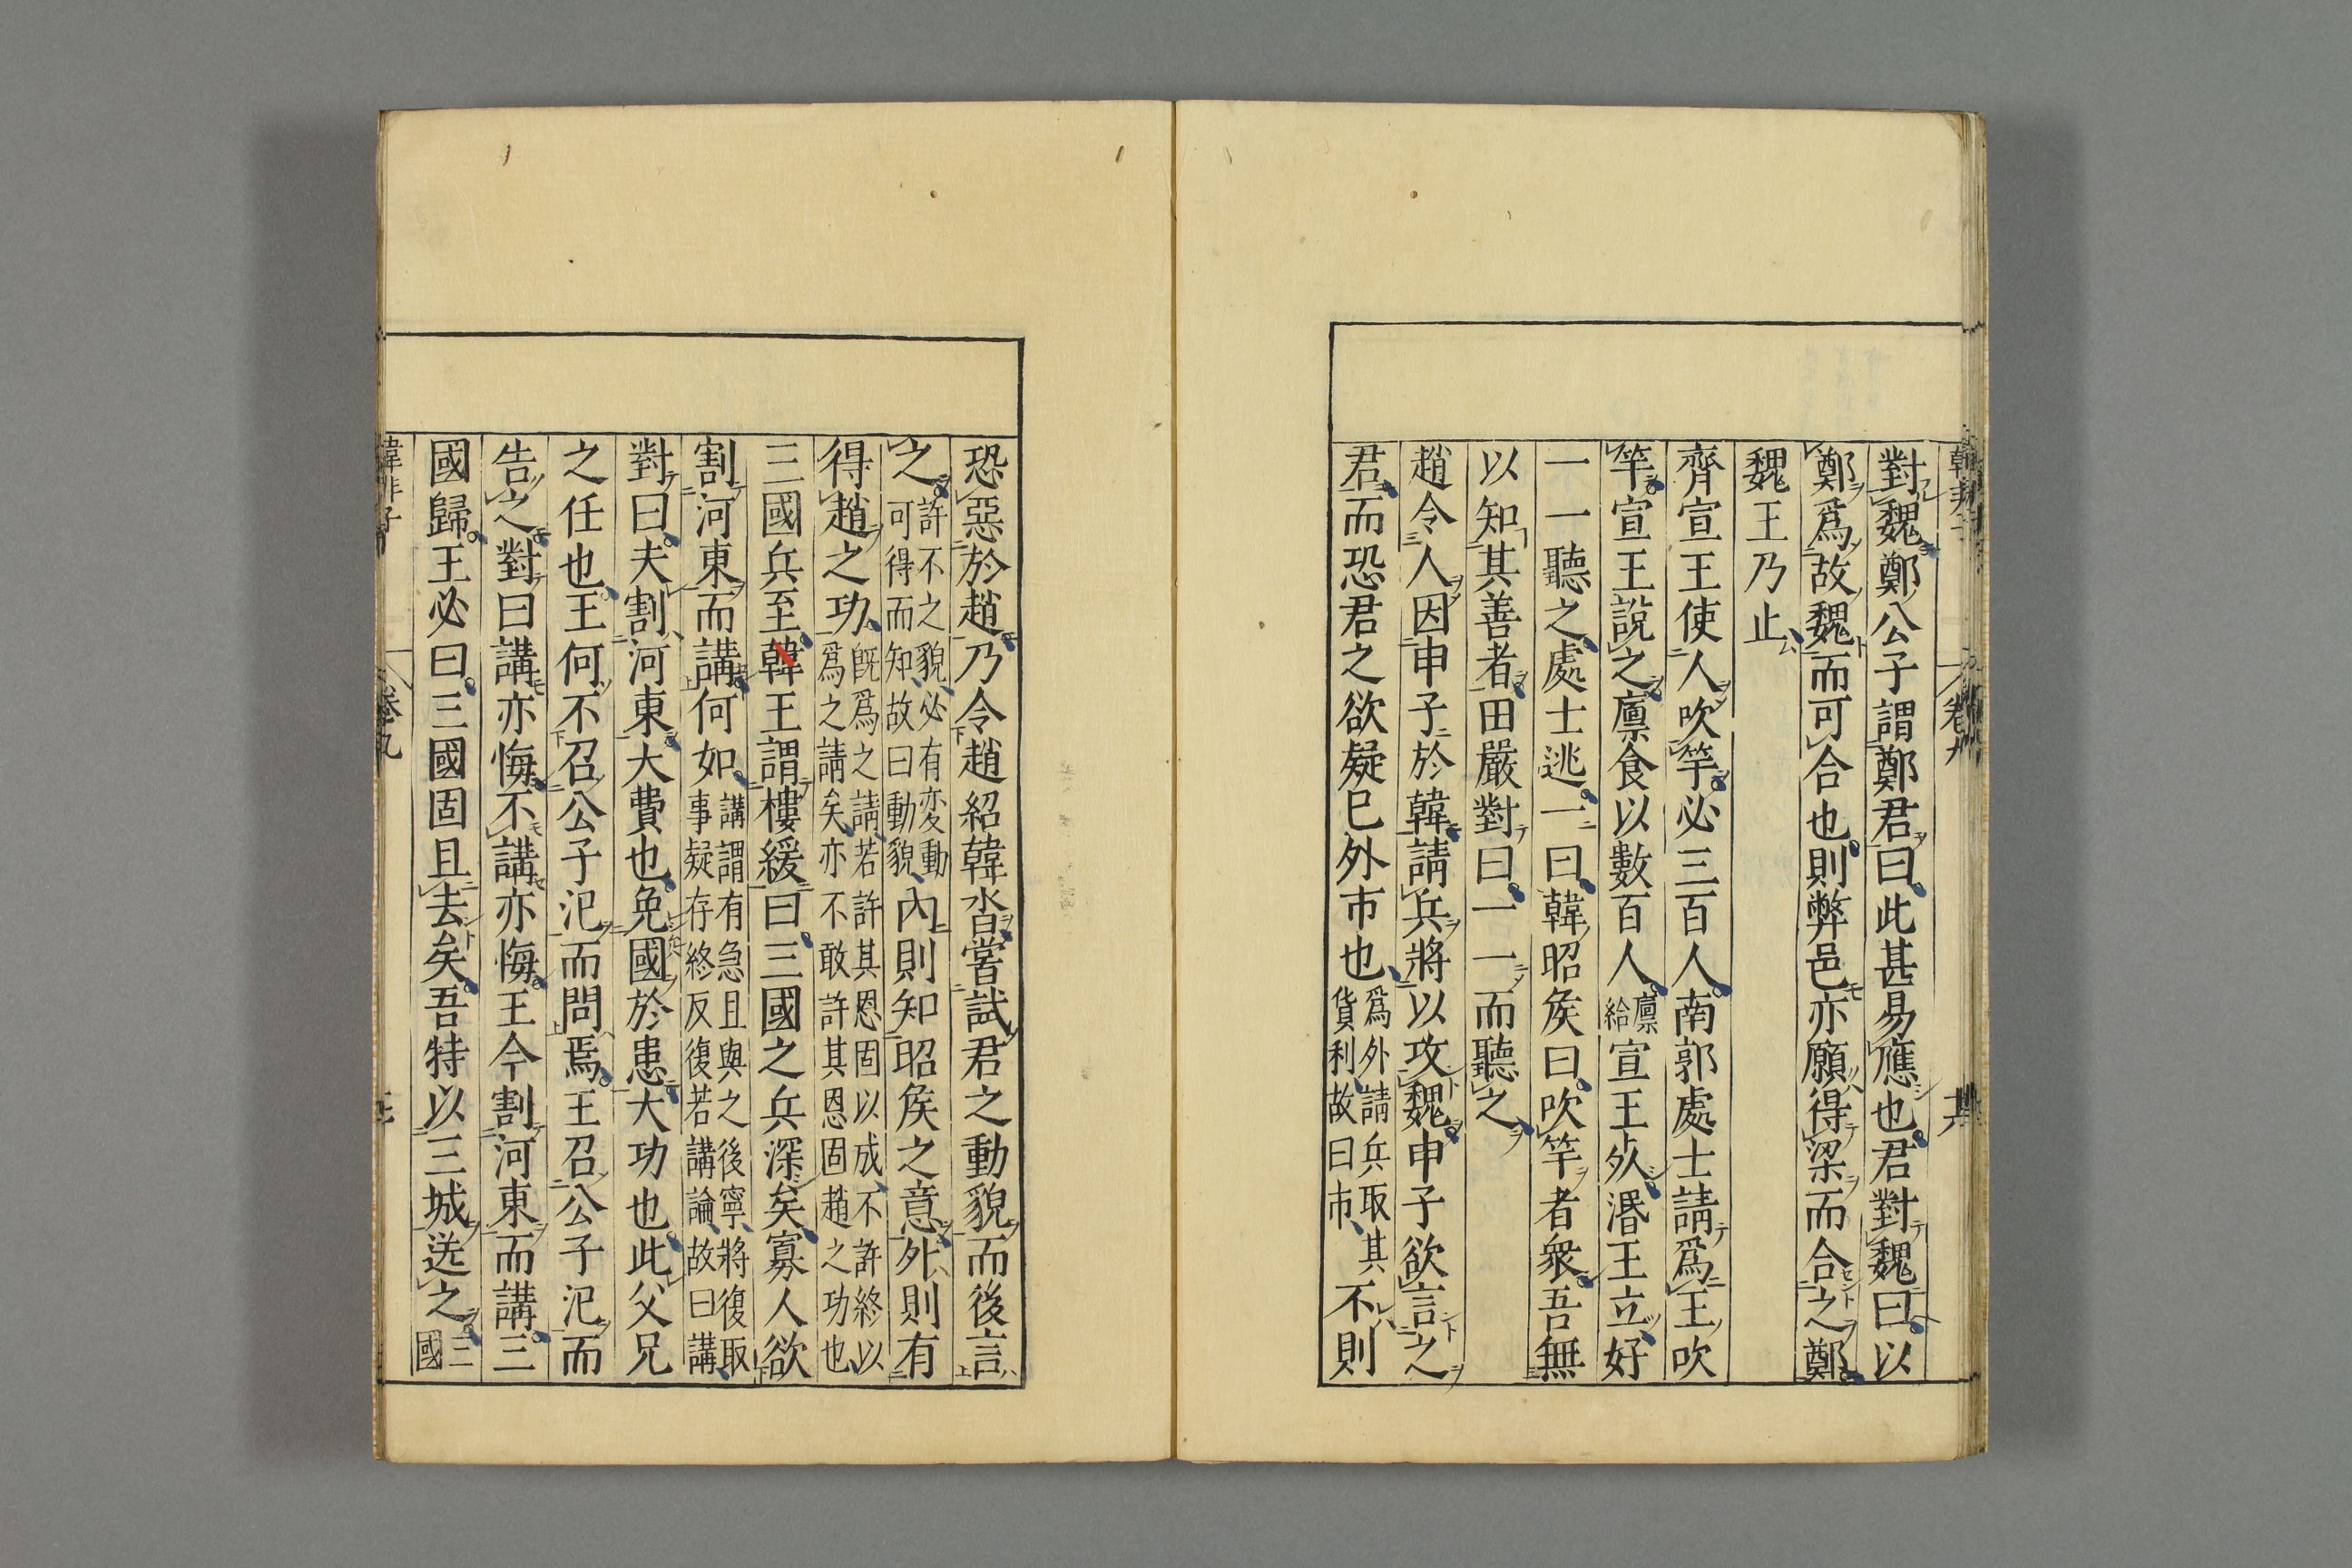 對魏鄭公子謂鄭君曰此甚易應也君對魏曰以
鄭爲故魏而可合也則弊邑亦願得梁而合之鄭
魏王乃止
齊宣王使人吹竽必三百人南郭處士請爲王吹
竽宣王說之廩食以數百人廩給宣王死湣王立好
一一聽之處士逃一曰韓昭矦曰吹竽者衆吾無
以知其善者田嚴對曰一一而聽之
趙令人因申子於韓請兵將以攻魏申子欲言之
君而恐君之欲疑已外市也爲外請兵取其貨利故曰市不則
恐惡於趙乃令趙紹韓沓嘗試君之動貌而後言
之許不之貌必有変動可得而知故曰動貌內則知昭矦之意外則有
得趙之功既爲之請若許其恩固以成不許終以爲之請矣亦不敢許其恩固趙之功也
三國兵至韓王謂樓緩曰三國之兵深矣寡人欲
割河東而講何如講謂有急且與之後寧將復取事疑存終反復若講論故曰講
對曰夫割河東大費也免國於患大功也此父兄
之任也王何不召公子氾而問焉王召公子氾而
告之對曰講亦悔不講亦悔王今割河東而講三
國歸王必曰三國固且去矣吾特以三城送之三國
卷九